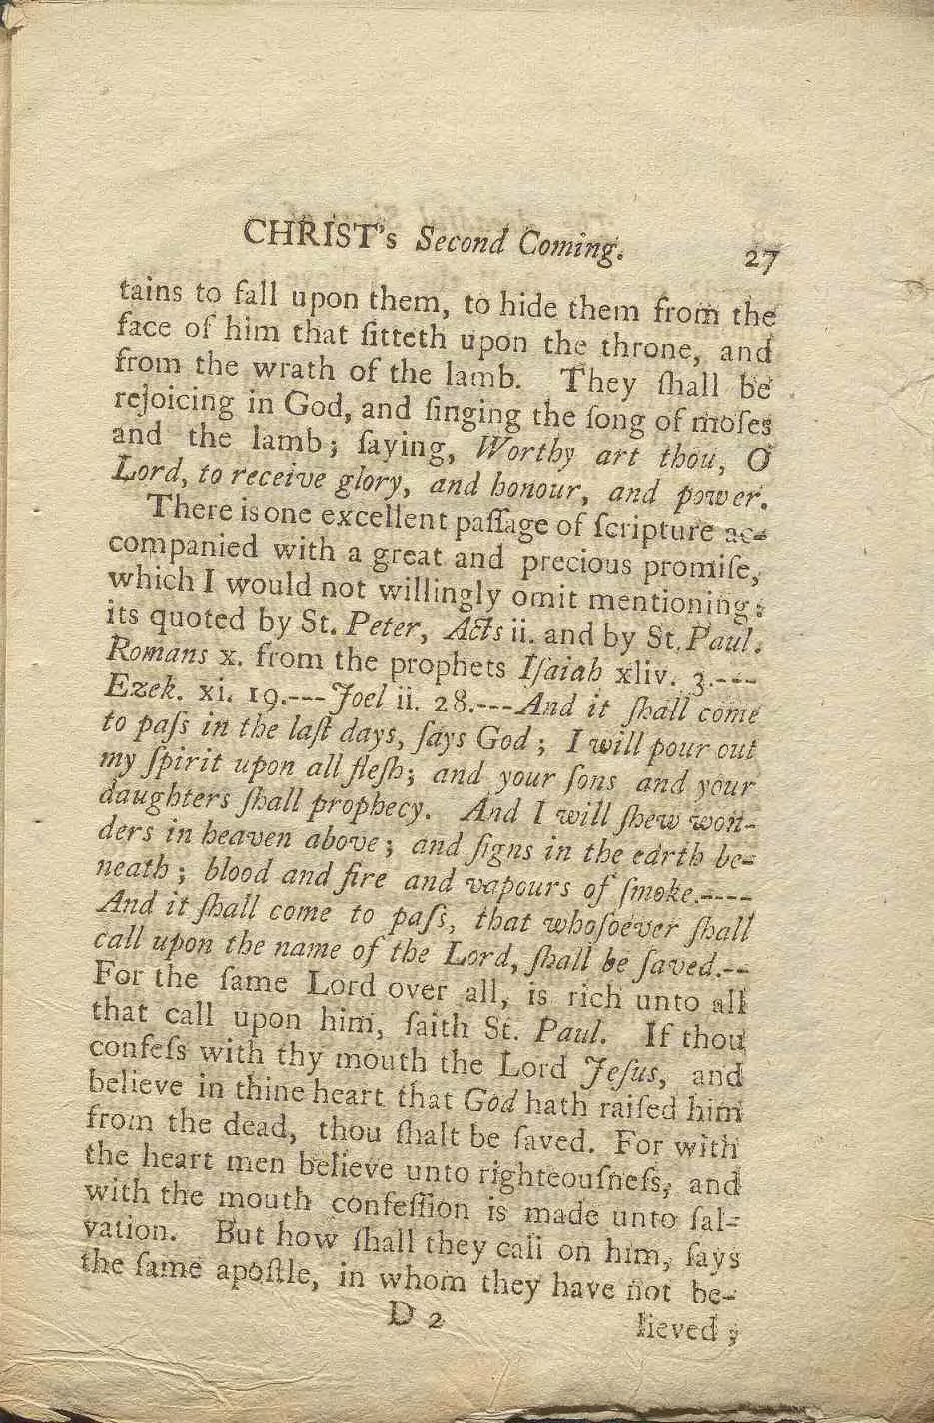 CHRIST's Second Coming. 27
tains to fall upon them, to hide them from the
face of him that ſitteth upon the throne, and
from the wrath of the lamb. They ſhall be
rejoicing in God, and ſinging the ſong of moſes
and the lamb; ſaying, Worthy art thou, O
Lord, to receive glory, and honour, and power.
There is one excellent paſſage of ſcripture ac-
companied with a great and precious promiſe,
which I would not willingly omit mentioning;
its quoted by St. Peter, Acts ii. and by St. Paul.
Romans x. from the prophets Iſaiah xliv. 3.---
Ezek. xi. 19.---Joel ii. 28.---And it ſhall come
to paſs in the laſt days, ſays God; I will pour out
my ſpirit upon all fleſh; and your ſons and your
daughters ſhall prophecy. And I will ſhew won-
ders in heaven above; and ſigns in the earth be-
neath; blood and fire and vapours of ſmoke.----
And it ſhall come to paſs, that whoſoever ſhall
call upon the name of the Lord, ſhall be ſaved.--
For the ſame Lord over all, is rich unto all
that call upon him, ſaith St. Paul. If thou
confeſs with thy mouth the Lord Jeſus, and
believe in thine heart that God hath raiſed him
from the dead, thou ſhalt be ſaved. For with
the heart men believe unto righteouſneſs, and
with the mouth confeſſion is made unto ſal-
vation. But how ſhall they call on him, ſays
the ſame apoſtle, in whom they have not be-
D 2 lieved;